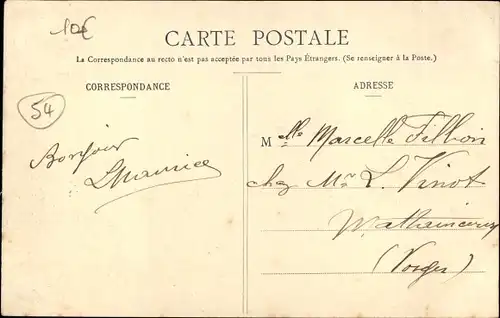 10€
CARTE POSTALE
La Correspondance au recto n'est pas acceptée par tous les Pays Étrangers. (Se renseigner à la Poste.)
CORRESPONDANCE
ADRESSE
54
Bonjour
LMaurice
Melle Marcelle Fillion
chez Mr L. Vinot
(Vosges)